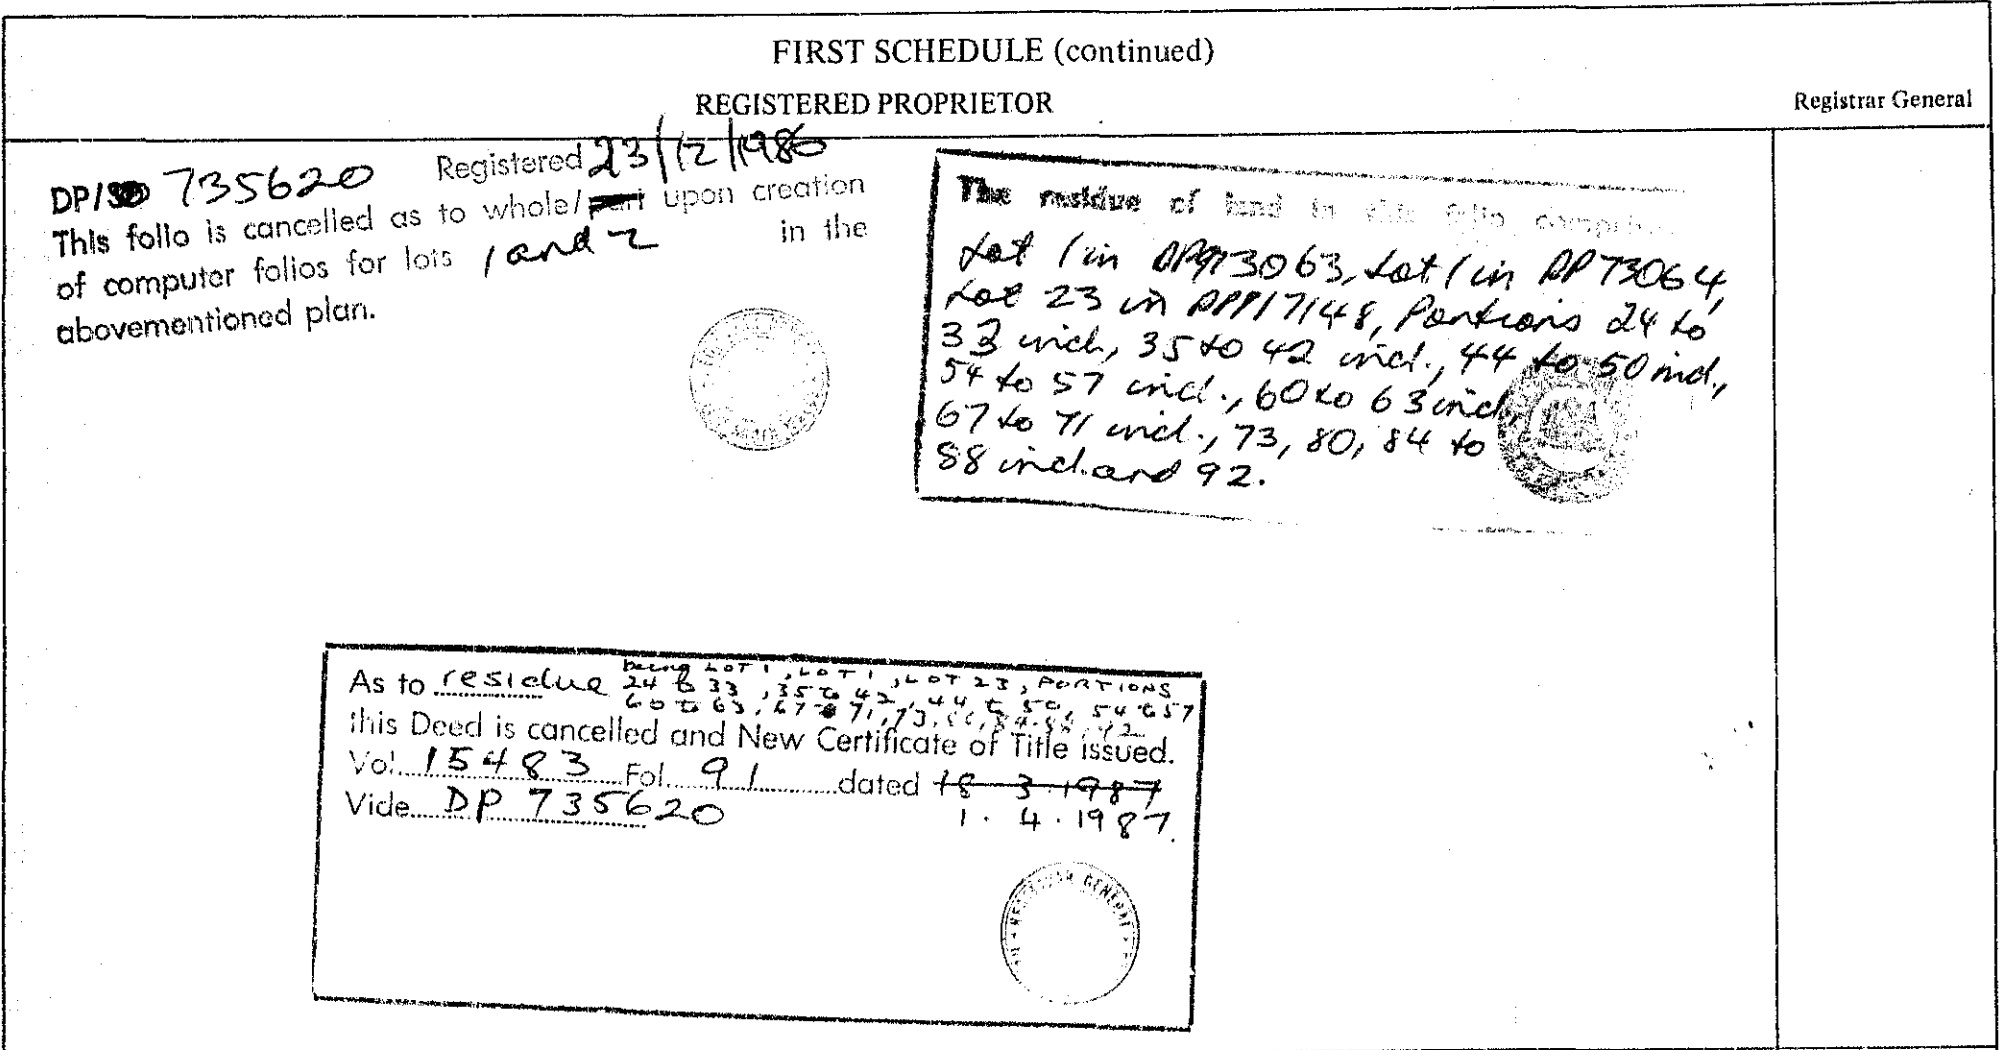 FIRST SCHEDULE (continued)
REGISTERED PROPRIETOR
Registrar General
DP/SP 735620 Registered 23/12/1986
This folio is cancelled as to whole/part upon creation
of computer folios for lots 1 and 2 in the
abovementioned plan.
The residue of land in this folio comprises
Lot 1 in 3063, Lot 1 in DP 73064,
Lot 23 in 17148, Portions 24 to
33 incl., 35 to 42 incl., 44 to 50 incl.,
54 to 57 incl., 60 to 63 incl.,
67 to 71 incl., 73, 80, 84 to
88 incl. and 92.
As to residue being LOT 1, LOT 1, LOT 23, PORTIONS
24 to 33, 35 to 42, 44 to 50, 54 to 57
60 to 63, 67 to 71, 73,
this Deed is cancelled and New Certificate of Title issued.
Vol. 15483 Fol. 91 dated 18 3 1987
Vide DP 735620 1. 4. 1987.
REGISTRAR GENERAL